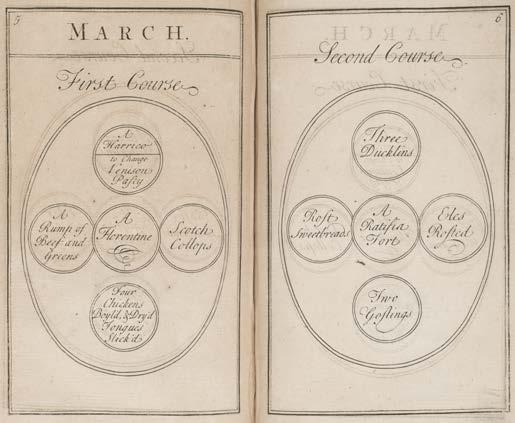 5
MARCH.
First Course
A
Harrico
to Change
Venison
Pasty
A
Rump of
Beef and
Greens
A
Florentine
Scotch
Collops
Four
Chickens
Boyld, & Dry'd
Tongues
Slick'd
6
Second Course
Three
Ducklins
Rost
Sweetbreads
A
Ratifia
Tort
Eles
Rosted
Two
Goslings